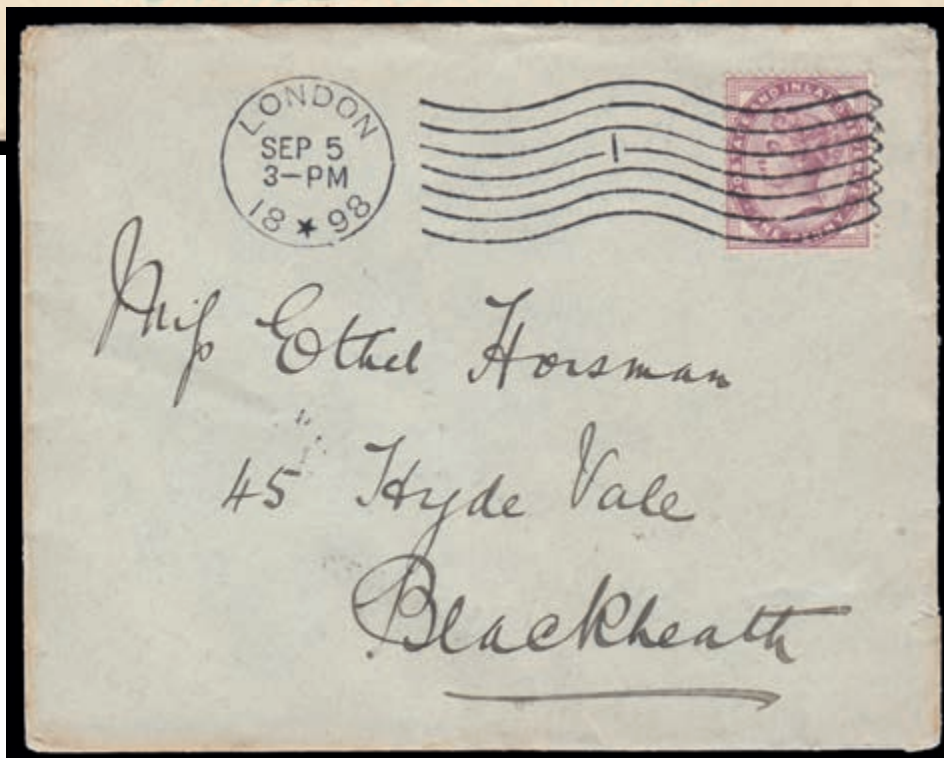 LONDON
SEP 5
3-PM
18 ★ 98
1
Miss Ethel Horsman
45 Hyde Vale
Blackheath